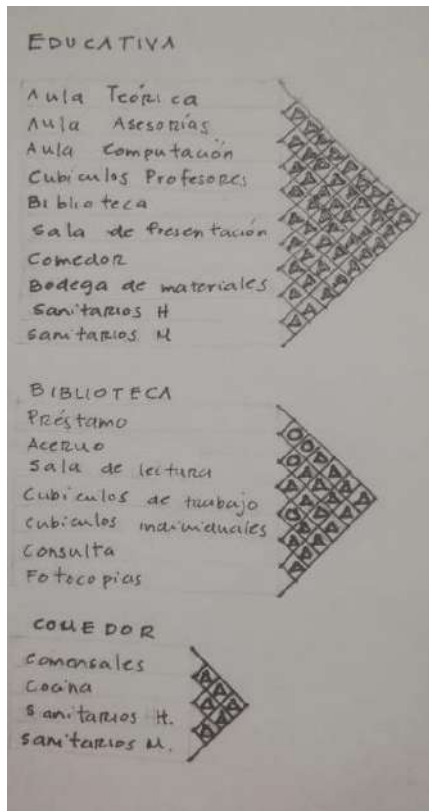 EDUCATIVA
Aula Teórica
Aula Asesorías
Aula Computación
Cubículos Profesores
Biblioteca
Sala de Presentación
Comedor
Bodega de materiales
Sanitarios H
Sanitarios M
BIBLIOTECA
Préstamo
Acervo
Sala de lectura
Cubículos de trabajo
Cubículos individuales
Consulta
Fotocopias
COMEDOR
Comensales
Cocina
Sanitarios H.
Sanitarios M.